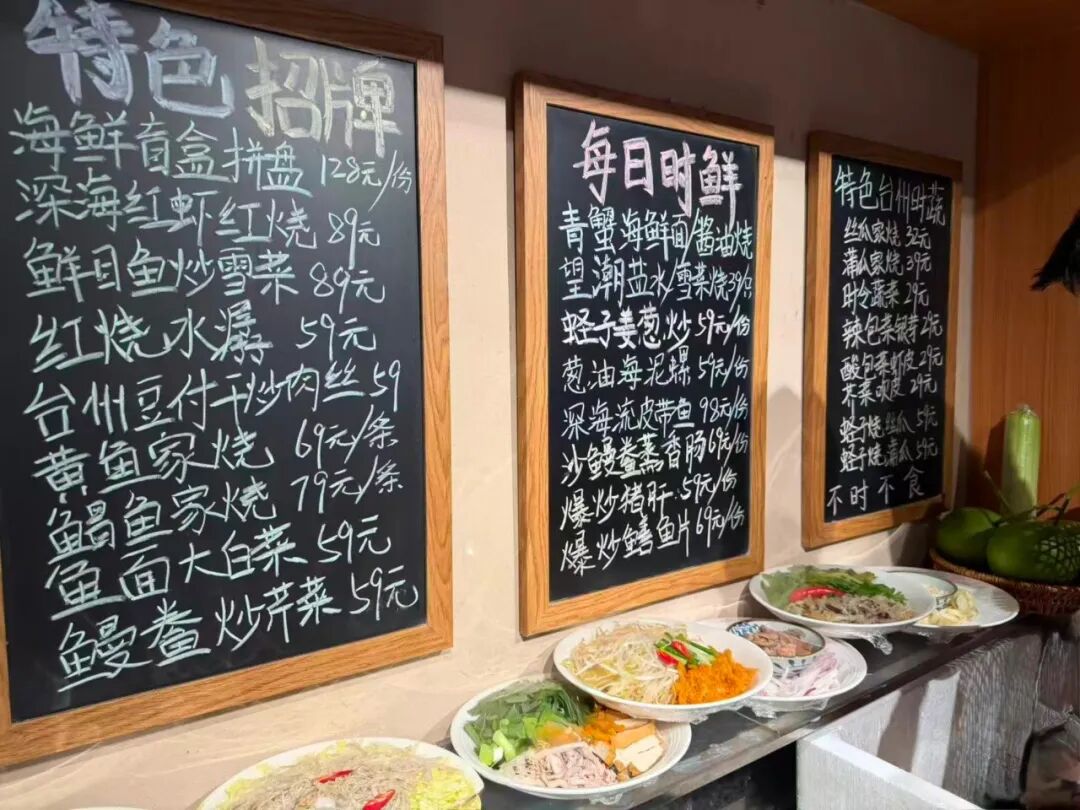 特色招牌
海鲜盲盒拼盘 128元/份
深海红虾红烧 89元
鲜目鱼炒雪菜 89元
红烧水潺 59元
台州豆付干炒肉丝 59
黄鱼家烧 69元/条
鲳鱼家烧 79元/条
鱼面大白菜 59元
鳗鲞炒芹菜 59元
每日时鲜
青蟹海鲜面/酱油烧
望潮盐水/雪菜烧 39/只
蛏子姜葱炒 59元/份
葱油海泥螺 59元/份
深海流皮带鱼 98元/份
沙鳗鲞蒸香肠 69元/份
爆炒猪肝 59元/份
爆炒鳝鱼片 69元/份
特色台州时蔬
丝瓜家烧 32元
蒲瓜家烧 39元
时令蔬菜 29元
辣包菜银芽 29元
酸包菜虾皮 29元
米菜皮 29元
蛏子烧丝瓜 59元
蛏子烧蒲瓜 59元
不时不食